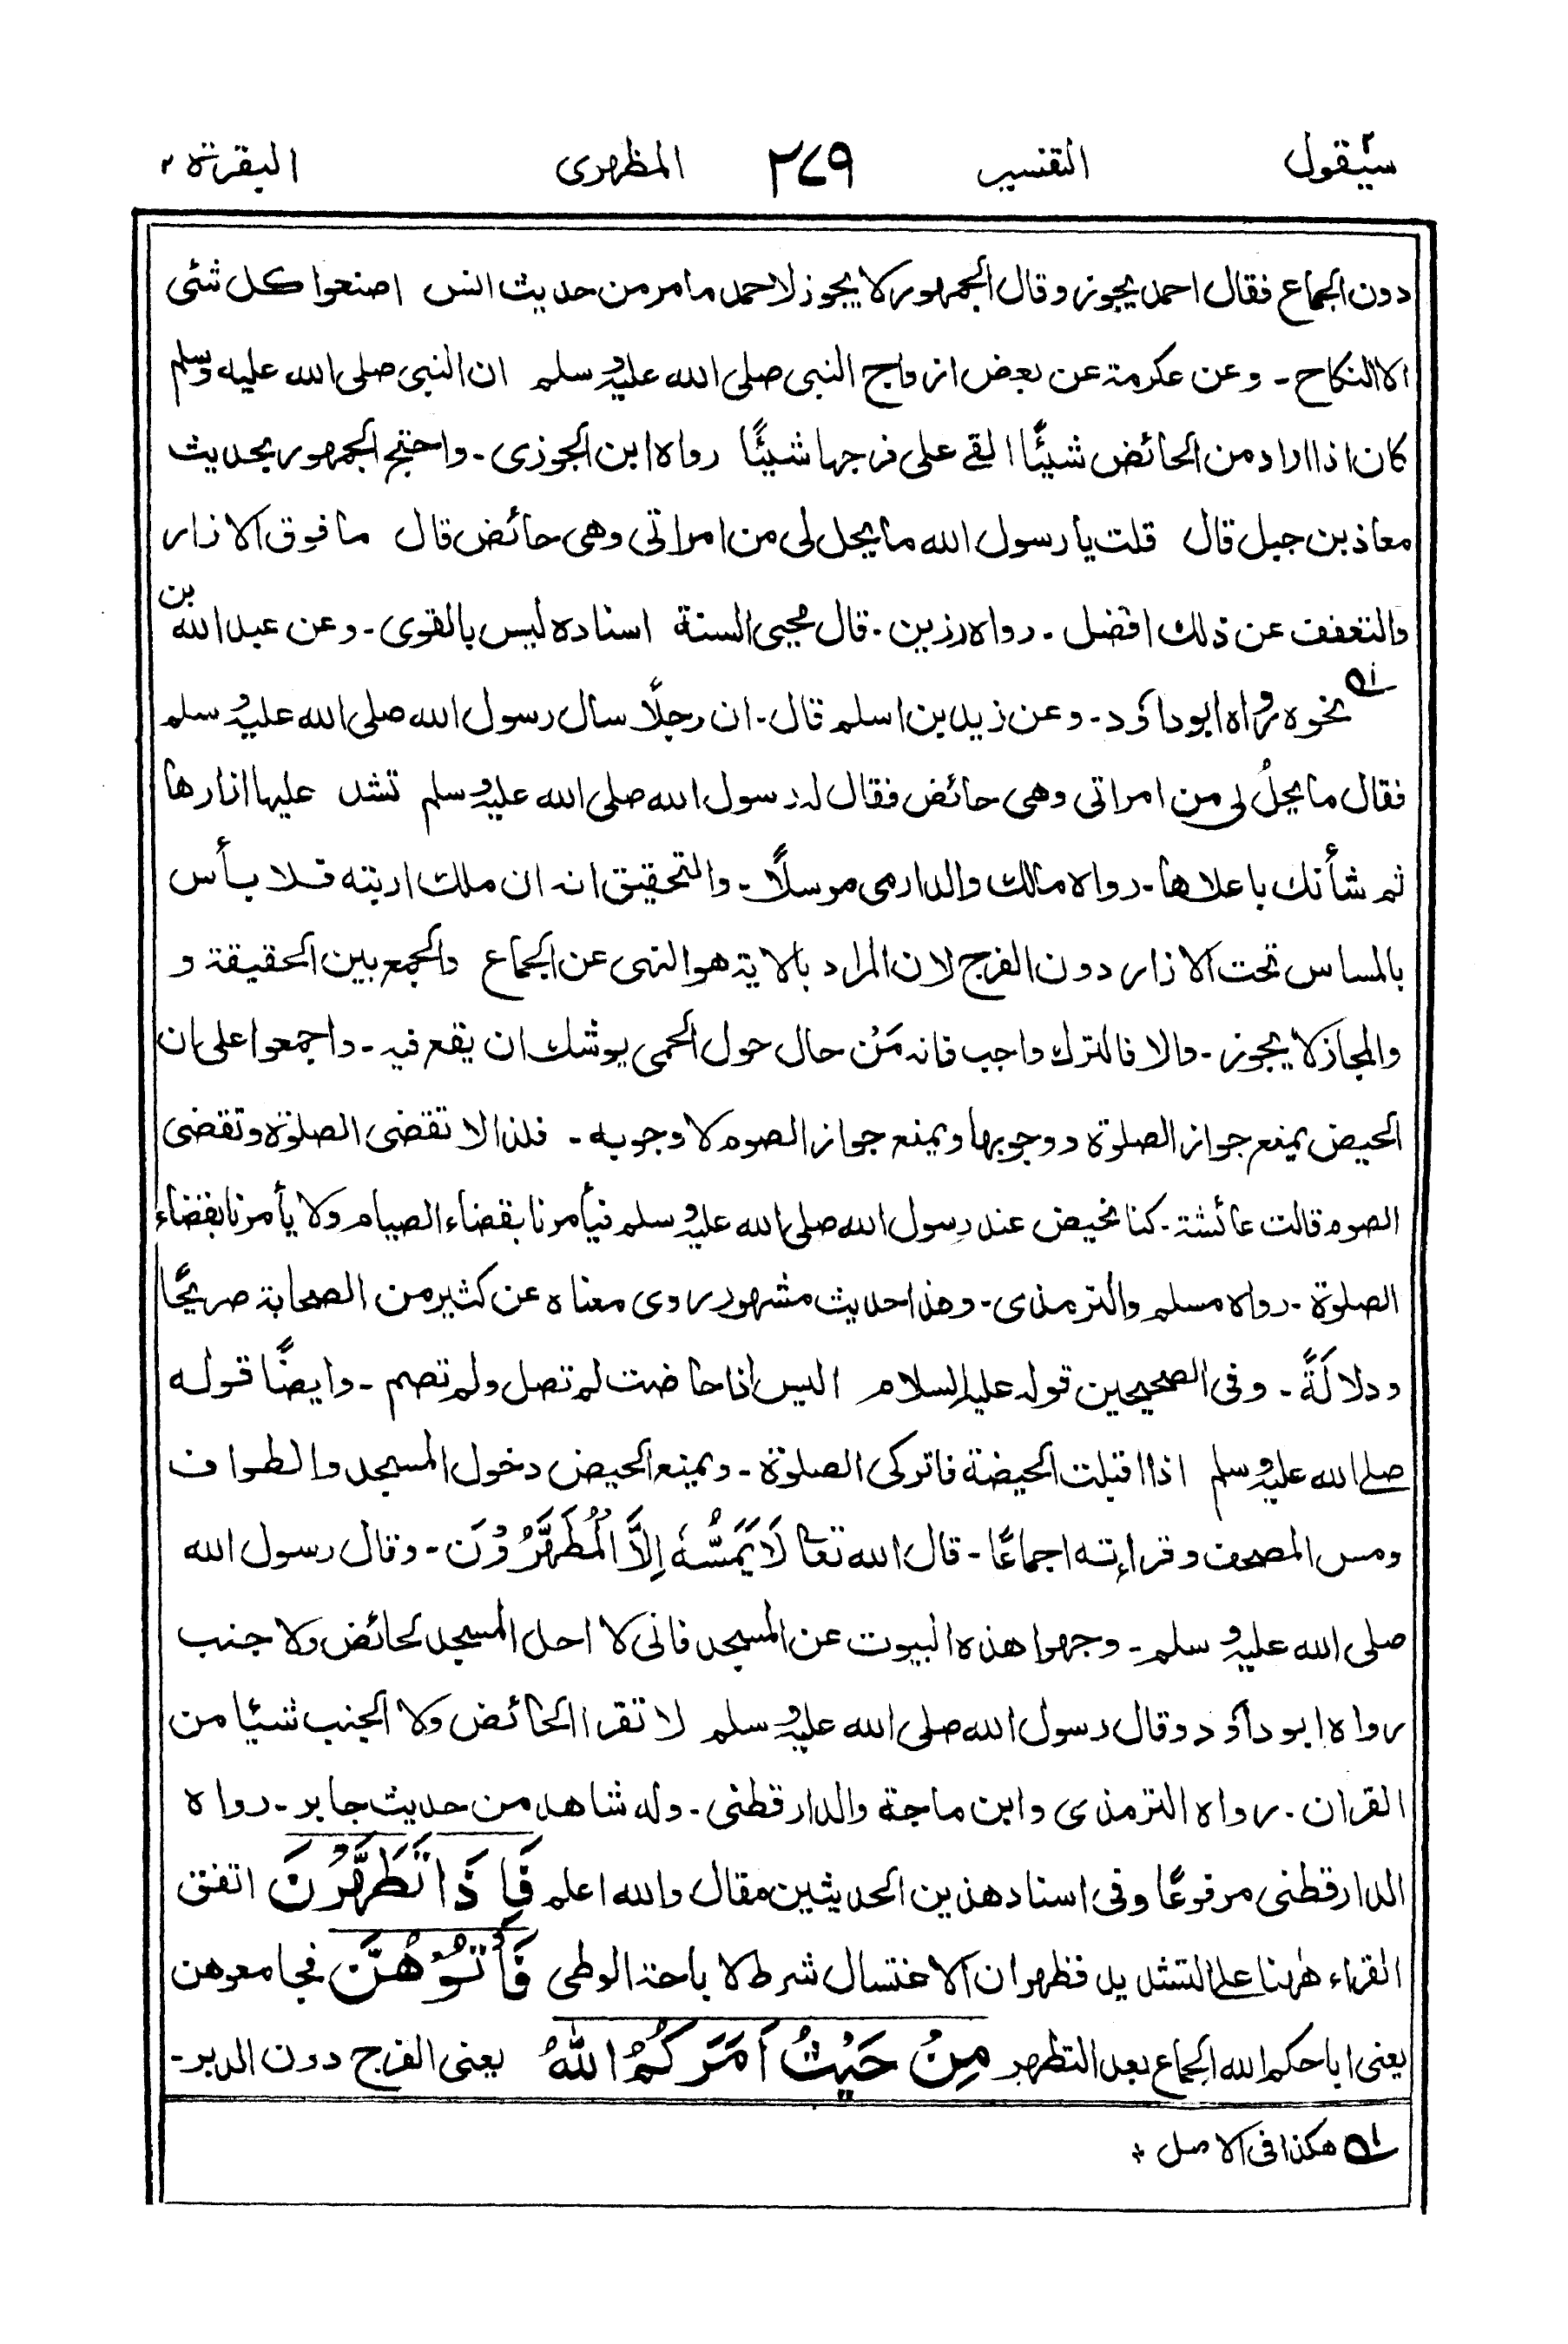 سيقول ٢ التفسير ٢٧٩ المظهرى البقرة ٢
دون الجماع فقال احمد يجوز وقال الجمهور لا يجوز لاحمد ما مر من حديث انس اصنعوا كل شئى
الا النكاح - وعن عكرمة عن بعض ازواج النبى صلى الله عليه وسلم ان النبى صلى الله عليه وسلم
كان اذا اراد من الحائض شيئًا القے على فرجها شيئًا رواه ابن الجوزى - واحتج الجمهور بحديث
معاذ بن جبل قال قلت يا رسول الله ما يحل لى من امراتى وهى حائض قال ما فوق الازار
والتعفف عن ذلك افضل - رواه رزين - قال محيى السنة اسناده ليس بالقوى - وعن عبد الله بن
لـه نحوه رواه ابو داؤد - وعن زيد بن اسلم قال - ان رجلًا سال رسول الله صلى الله عليه وسلم
فقال ما يحلُ لى من امراتى وهى حائض فقال له رسول الله صلى الله عليه وسلم تشد عليها ازارها
ثم شأنك باعلاها - رواه مالك والدارمى مرسلًا - والتحقيق انه ان ملك اربته فلا بأس
بالمساس تحت الازار دون الفرج لان المراد بالاية هو النهى عن الجماع والجمع بين الحقيقة و
والمجاز لا يجوز - والا فالترك واجب فانه مَنْ حال حول الحمى يوشك ان يقع فيه - واجمعوا على ان
الحيض يمنع جواز الصلوة ووجوبها ويمنع جواز الصوم لا وجوبه - فلذا لا تقضى الصلوة وتقضى
الصوم قالت عائشة - كنا نحيض عند رسول الله صلى الله عليه وسلم فيأمرنا بقضاء الصيام ولا يأمرنا بقضاء
الصلوة - رواه مسلم والترمذى - وهذا حديث مشهور روى معناه عن كثير من الصحابة صريحًا
ودلالَةً - وفى الصحيحين قوله عليه السلام اليس اذا حاضت لم تصل ولم تصم - وايضًا قوله
صلے الله عليه وسلم اذا اقبلت الحيضة فاتركى الصلوة - ويمنع الحيض دخول المسجد والطواف
ومس المصحف وقراءته اجماعًا - قال الله تعالٰى لَا يَمَسُّهٗ اِلَّا الْمُطَهَّرُوْنَ - وقال رسول الله
صلى الله عليه وسلم - وجهوا هذه البيوت عن المسجد فانى لا احل المسجد لحائض ولا جنب
رواه ابو داؤد وقال رسول الله صلى الله عليه وسلم لا تقرا الحائض ولا الجنب شيئا من
القران - رواه الترمذى وابن ماجة والدارقطنى - وله شاهد من حديث جابر - رواه
الدارقطنى مرفوعًا وفى اسناد هذين الحديثين مقال والله اعلم فَاِذَا تَطَهَّرْنَ اتفق
القراء هٰهنا على التشديد فظهر ان الاغتسال شرط لاباحة الوطى فَأْتُوْهُنَّ فجامعوهن
يعنى اباحكم الله الجماع بعد التطهر مِنْ حَيْثُ اَمَرَكُمُ اللّٰهُ يعنى الفرج دون الدبر -
لـه هكذا فى الاصل